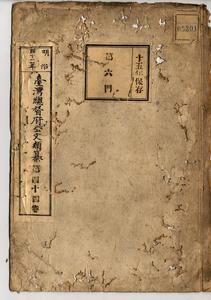 05801
十五年保存
第六門
明治
四十二年
臺灣總督府公文類纂
第四十四卷